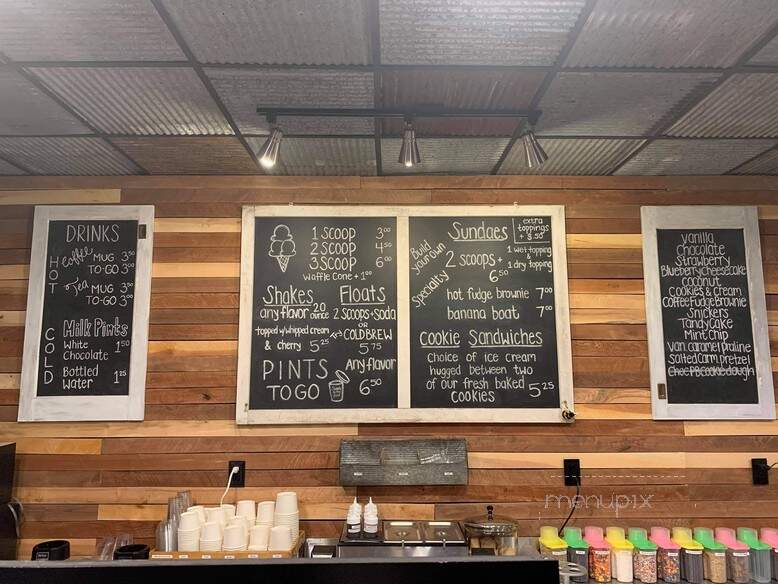 DRINKS
HOT
Coffee MUG 3⁵⁰
TO-GO 3⁰⁰
Tea MUG 3⁵⁰
TO-GO 3⁰⁰
COLD
Milk Pints
White
Chocolate 1⁵⁰
Bottled
Water 1²⁵
1 SCOOP 3⁰⁰
2 SCOOP 4⁵⁰
3 SCOOP 6⁰⁰
Waffle Cone + 1⁰⁰
Shakes
any flavor 20 ounce
topped w/whipped cream
& cherry 5²⁵
Floats
2 SCOOPS+SODA
OR
COLD BREW
5⁷⁵
PINTS
TO GO
Any flavor
6⁵⁰
Sundaes
extra
toppings
+ $.50
Build
your own
2 SCOOPS +
1 wet topping
1 dry topping
6⁵⁰
Specialty
hot fudge brownie 7⁰⁰
banana boat 7⁰⁰
Cookie Sandwiches
Choice of ice cream
hugged between two
of our fresh baked
cookies 5²⁵
vanilla
chocolate
Strawberry
Blueberry cheesecake
coconut
cookies & cream
Coffee Fudge Brownie
Snickers
Tandy Cake
Mint Chip
Van caramel praline
Salted Carm pretzel
Choc PB cookie dough
menupix